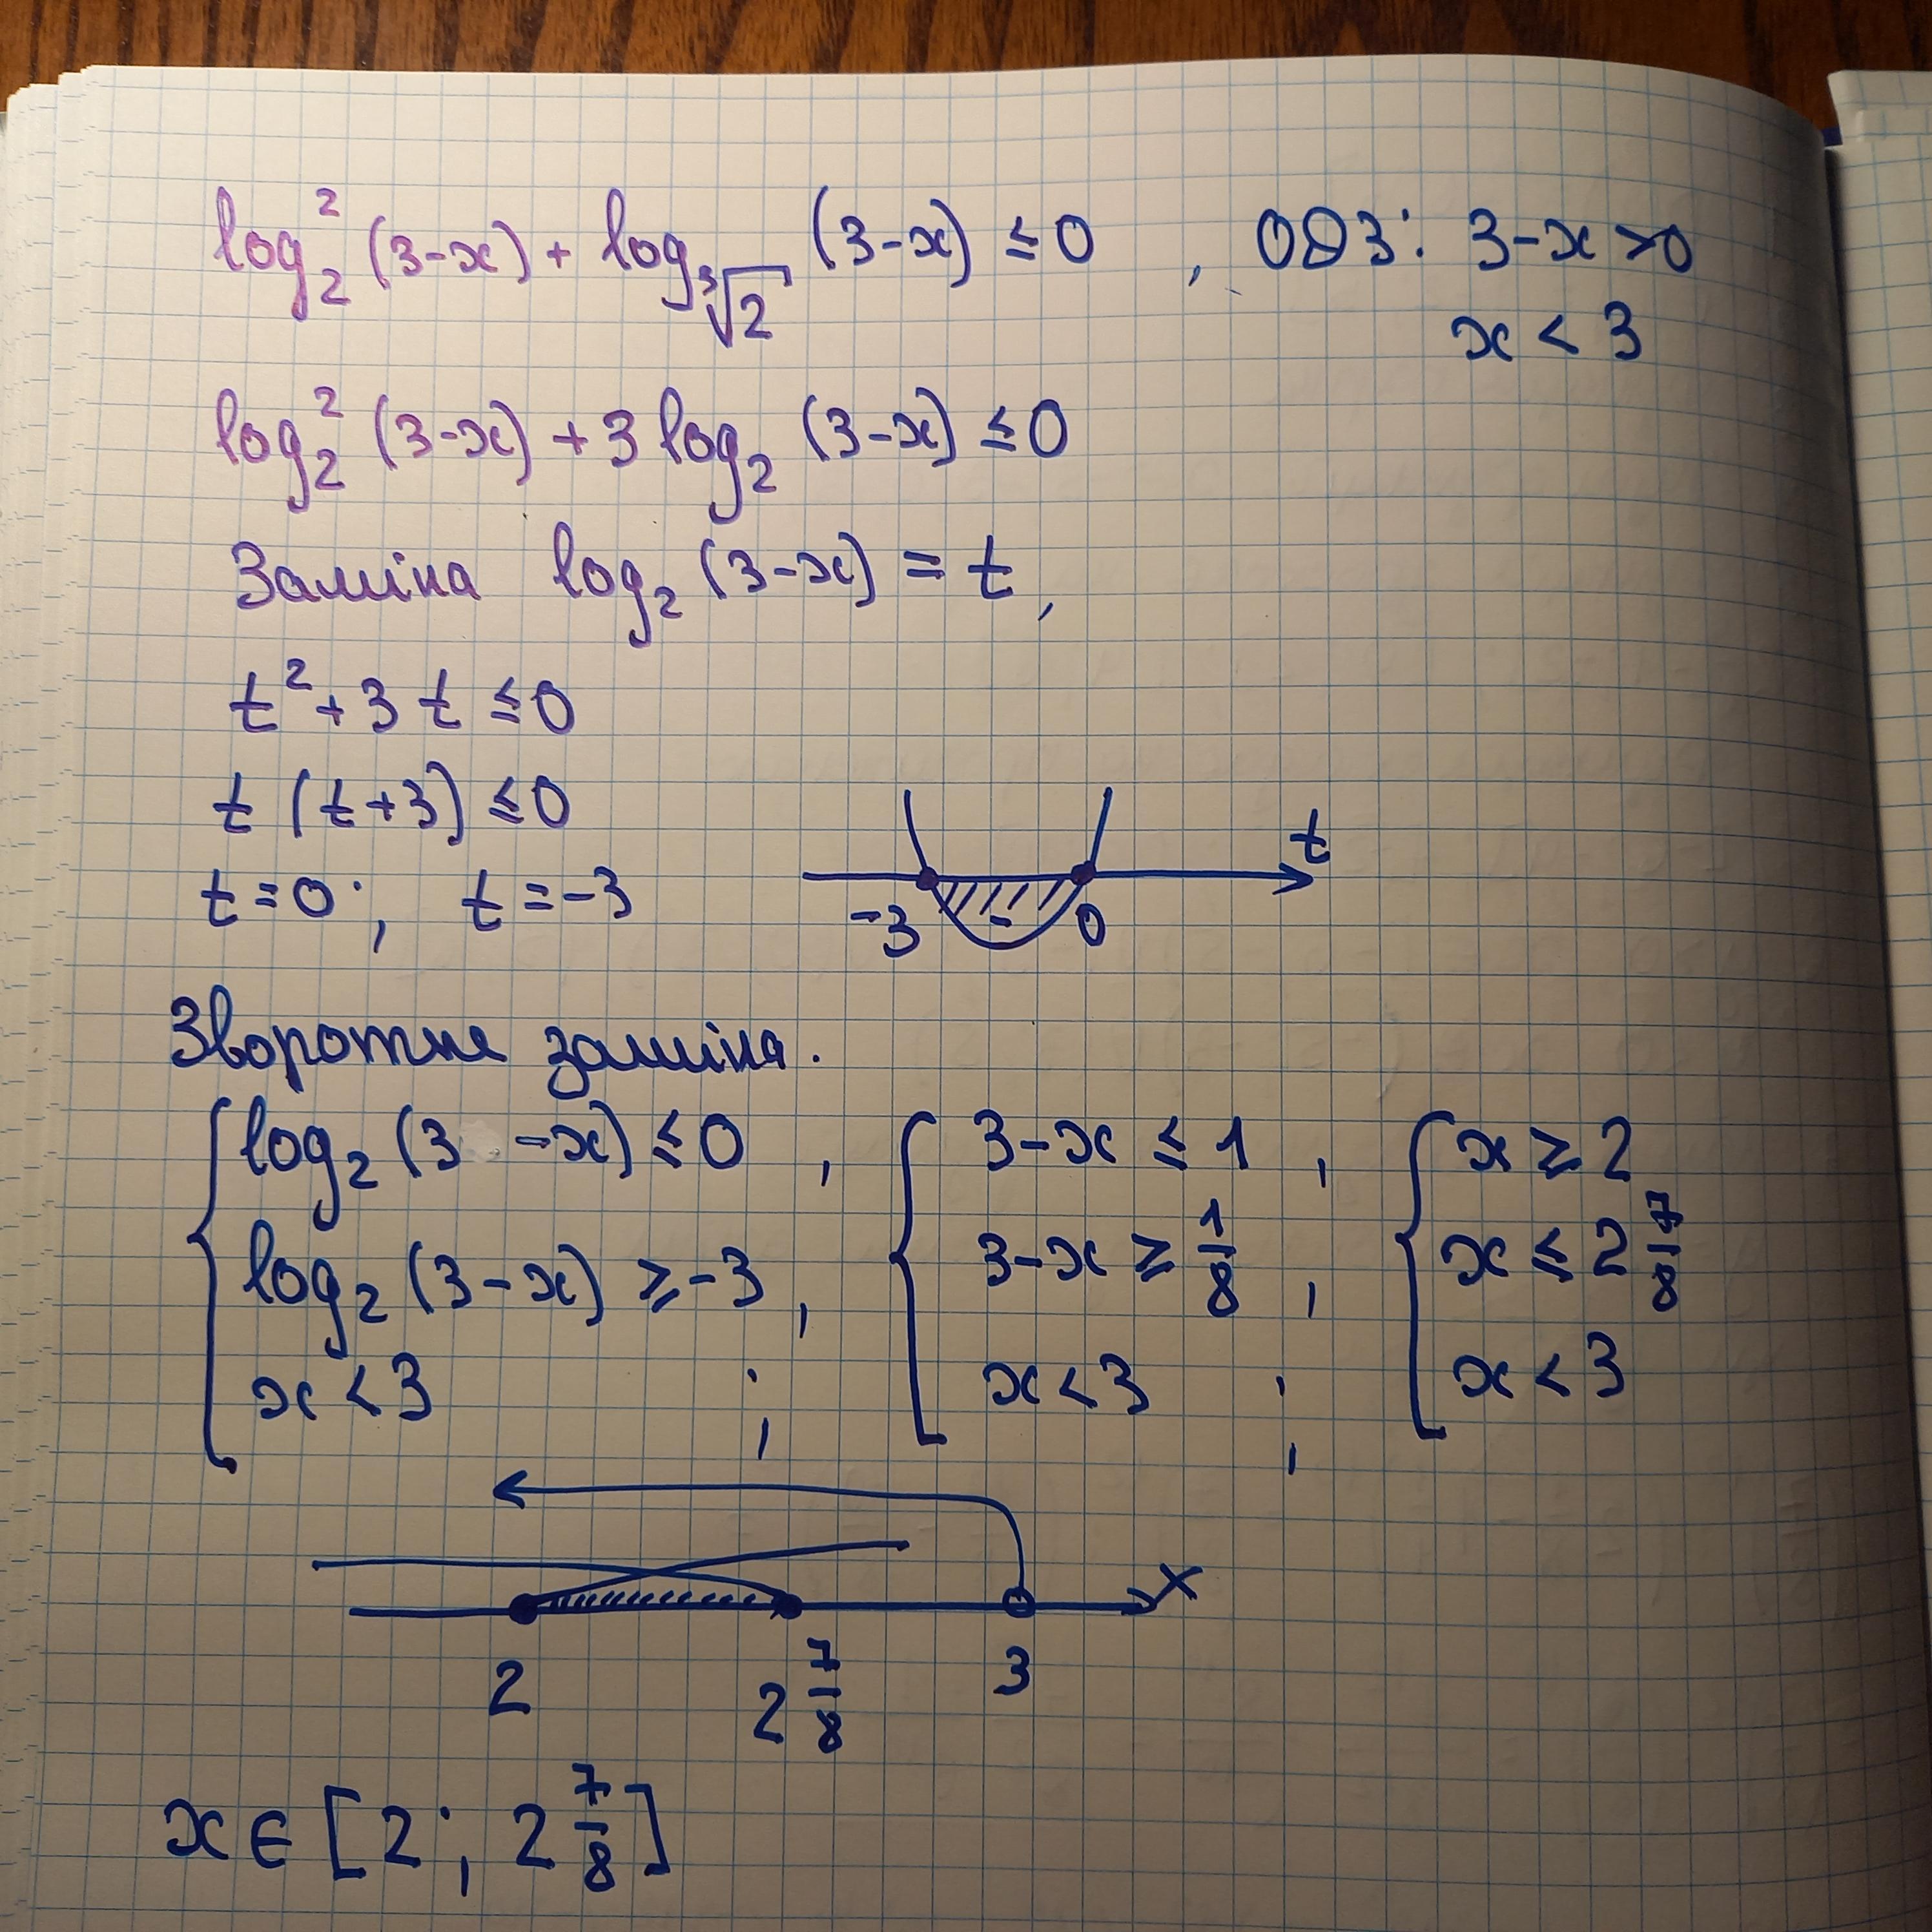 log₂²(3-x) + log_∛2 (3-x) ≤ 0 , ОДЗ: 3-x > 0
x < 3
log₂²(3-x) + 3 log₂ (3-x) ≤ 0
Заміна log₂ (3-x) = t,
t² + 3t ≤ 0
t (t+3) ≤ 0
t = 0; t = -3
t
-3 - 0
Зворотня заміна.
{ log₂ (3 -x) ≤ 0 , { 3-x ≤ 1 , { x ≥ 2
log₂ (3-x) ≥ -3 , 3-x ≥ 1/8 , x ≤ 2 7/8
x < 3 ; x < 3 ; x < 3
x
2 2 7/8 3
x ∈ [2; 2 7/8]